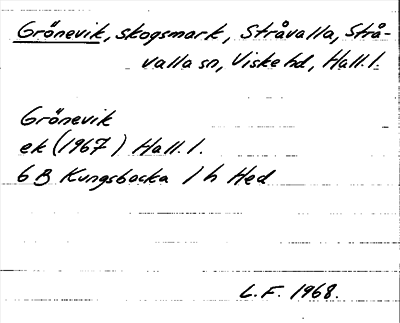 Grönevik, skogsmark, Stråvalla, Strå-
valla sn, Viske hd, Hall. l.
Grönevik
ek (1967) Hall. l.
6 B Kungsbacka 1 h Hed
L.F. 1968.